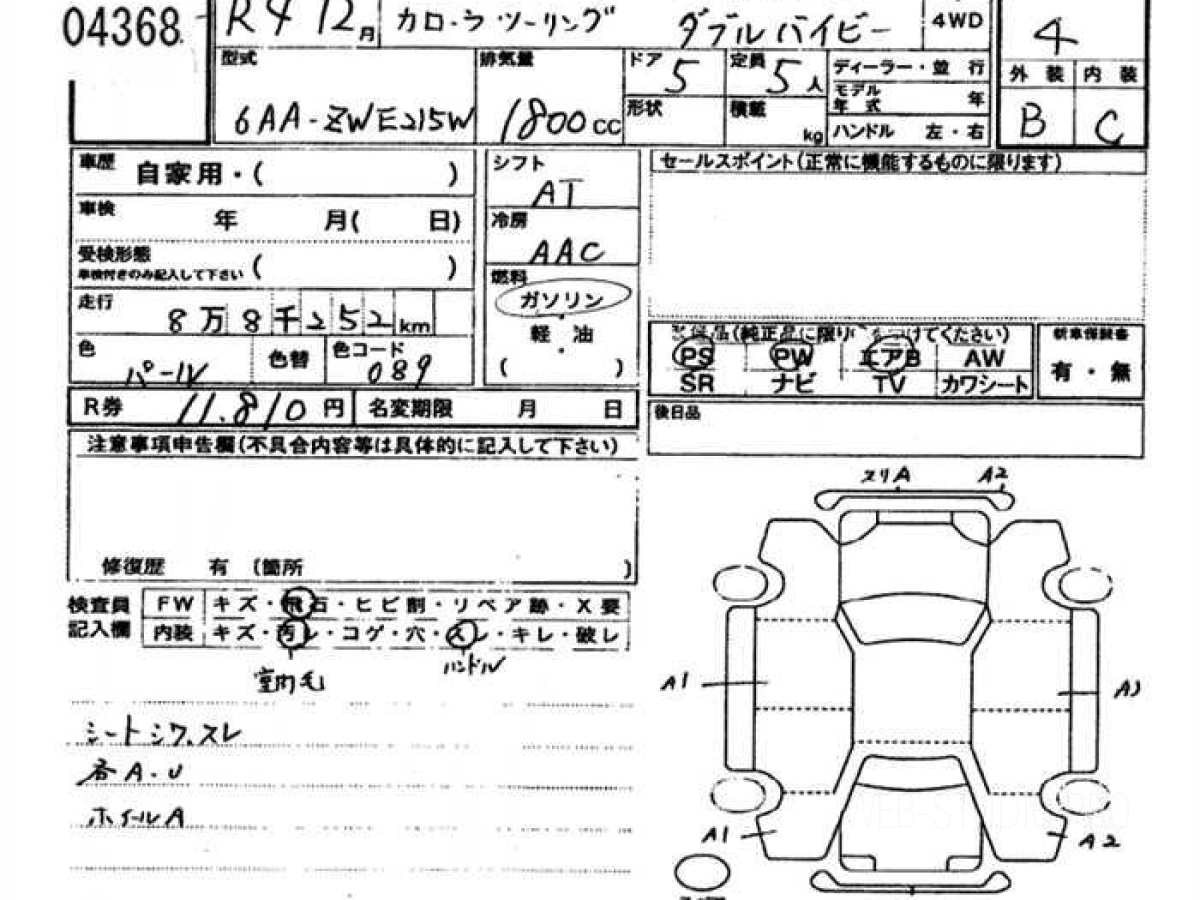 04368
R4 12月 カローラツーリング ダブルバイビー 4WD 4
型式 排気量 ドア 5 定員 5人 ディーラー・並 行 外 装 内 装
6AA-ZWE215W 1800cc 形状 積載 kg モデル年式 年 B C
ハンドル 左・右
車歴 自家用・( ) シフト セールスポイント(正常に機能するものに限ります)
AT
車検 年 月( 日) 冷房
AAC
受検形態 ( )
車検付きのみ記入して下さい
燃料
ガソリン
走行 8万8千252km 軽・油
(純正品に限り をつけてください) 新車保証書
色 パール 色替 色コード 089 ( ) PS PW エアB AW 有・無
SR ナビ TV カワシート
R券 11,810円 名変期限 月 日 後日品
注意事項申告欄(不具合内容等は具体的に記入して下さい)
スリA A2
修復歴 有 (箇所 )
検査員 FW キズ・飛石・ヒビ割・リペア跡・X要
記入欄 内装 キズ・汚レ・コゲ・穴・スレ・キレ・破レ
室内毛 ハンドル
A1 A1
シートシワ,スレ
各A.U
ホイールA
WEB-ST
A1 A2